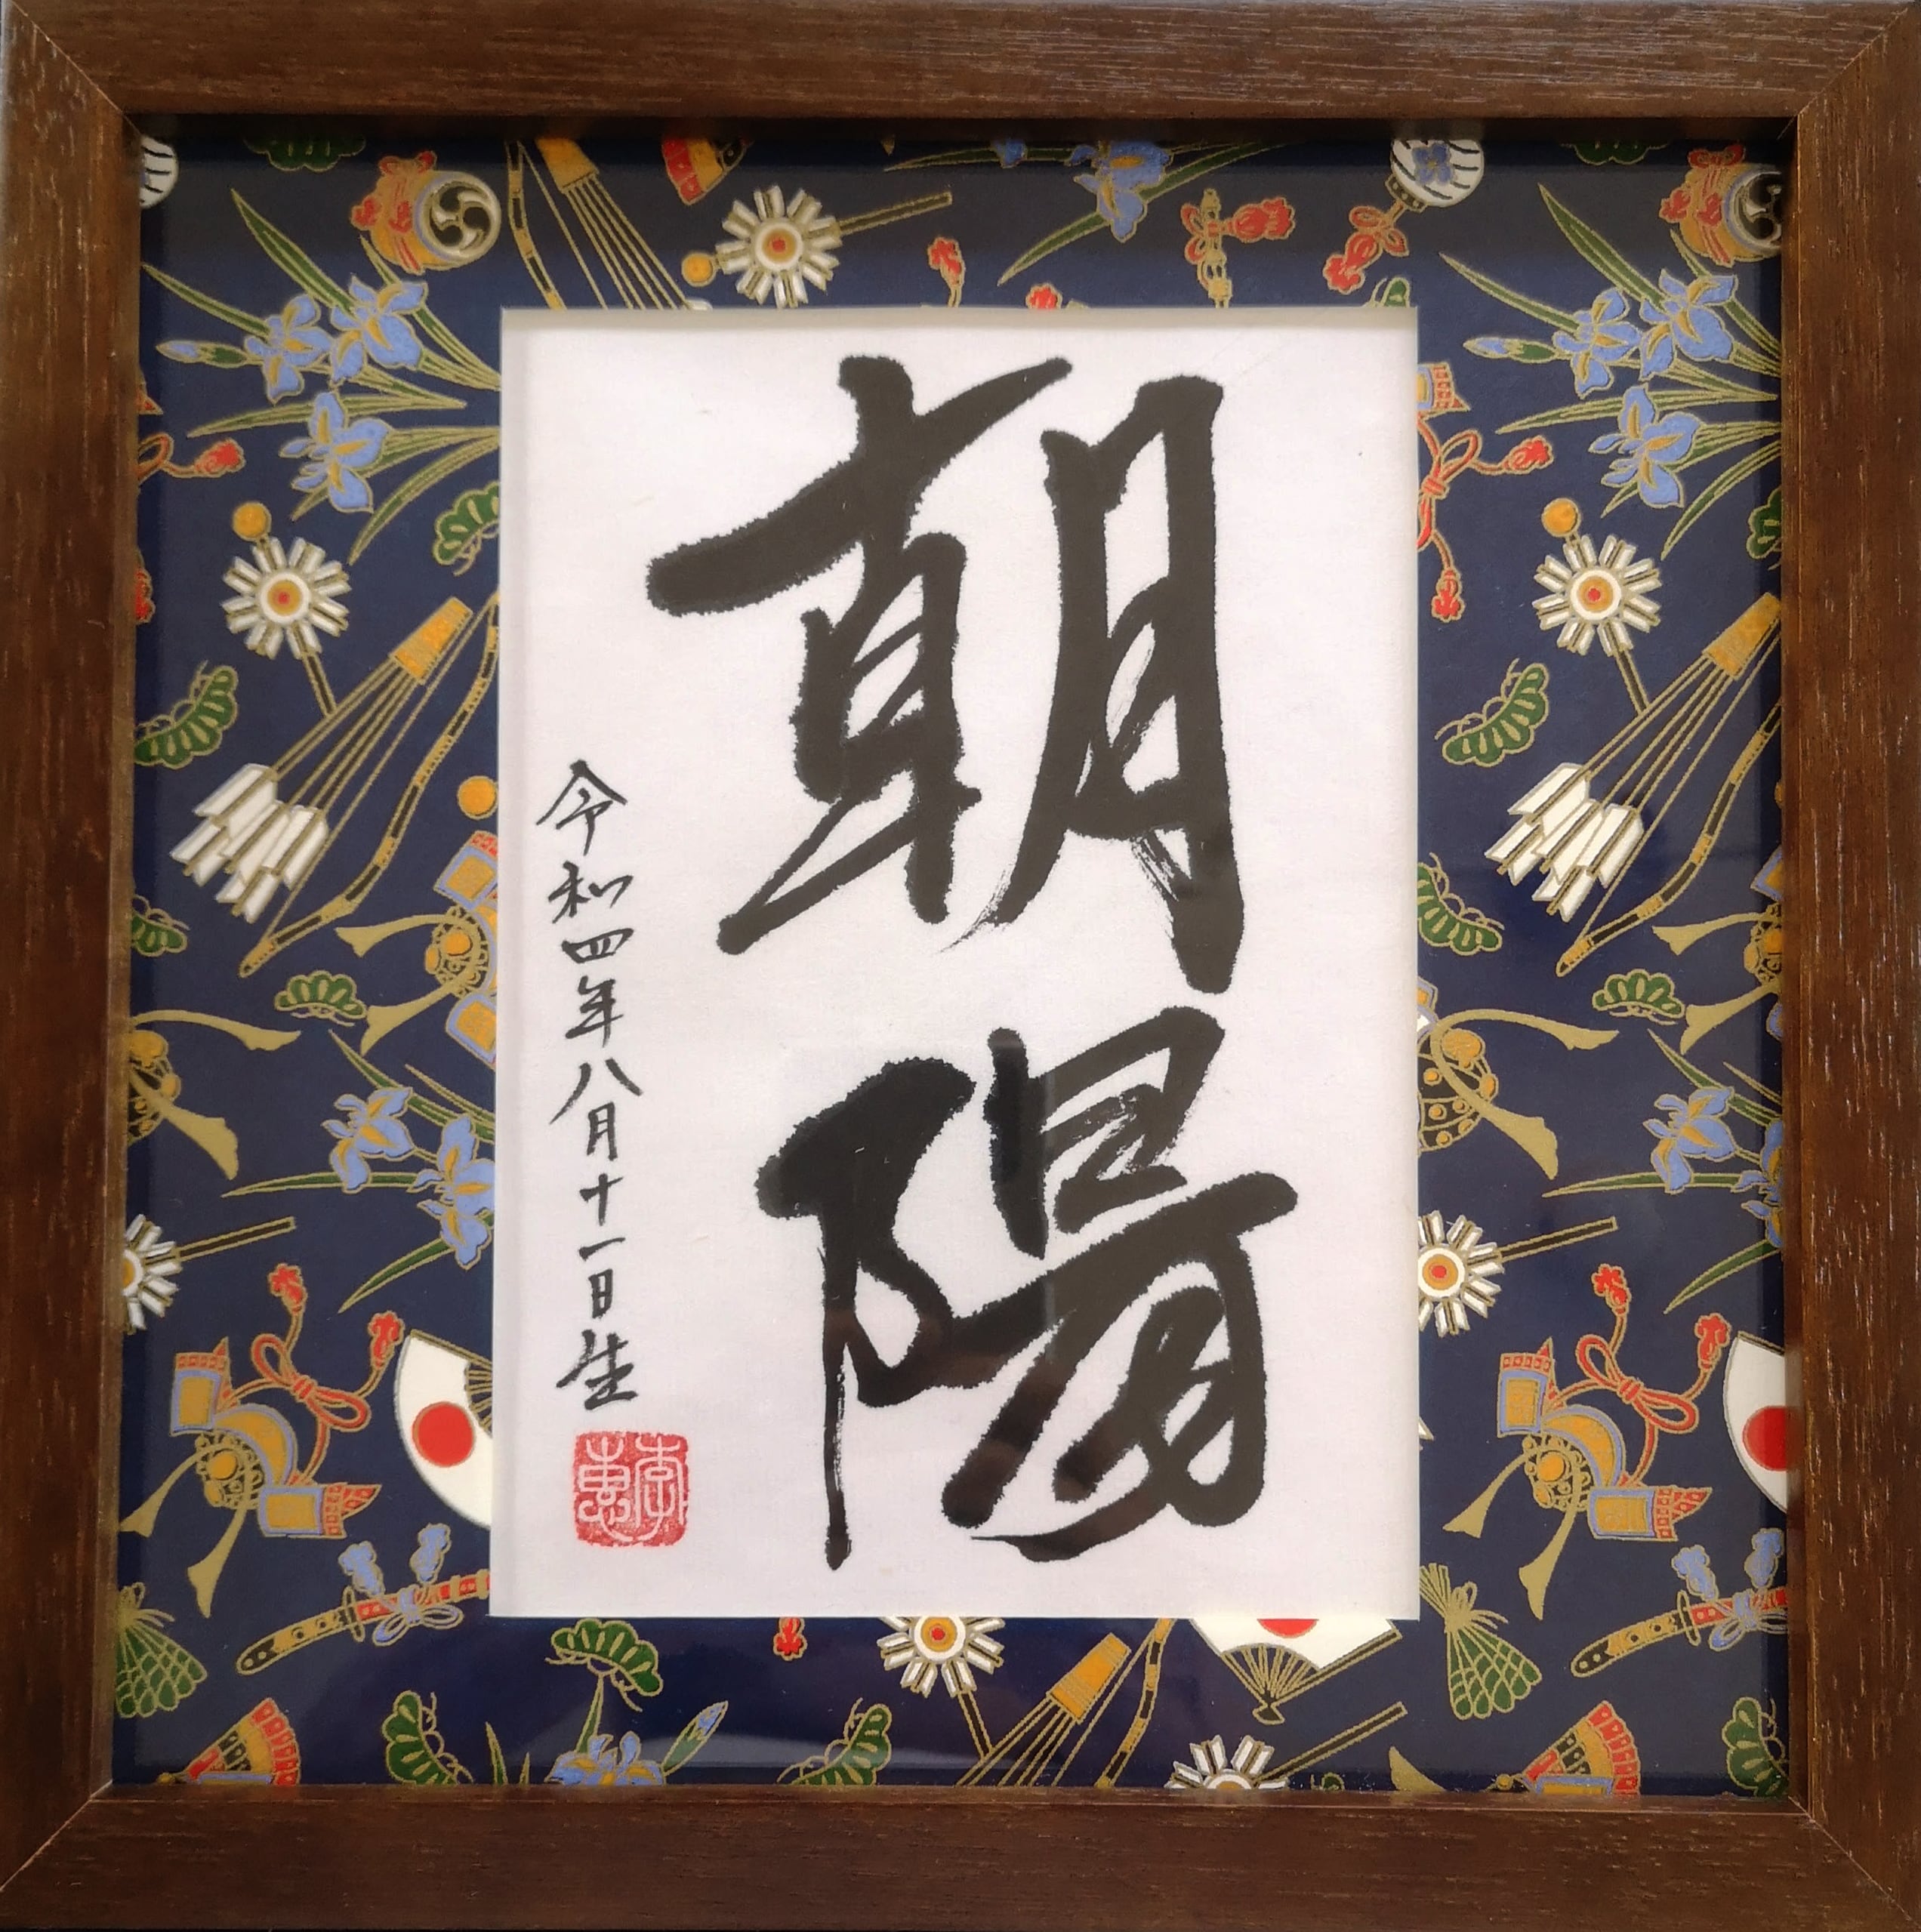 朝陽
令和四年八月十一日生
李惠